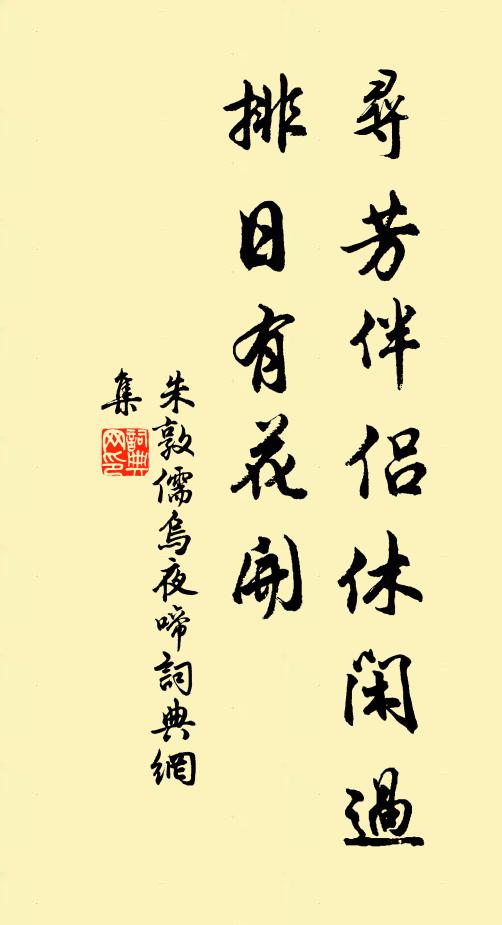 尋芳伴侶休閑過
排日有花開
朱敦儒烏夜啼詞典網
集
詞典
网印